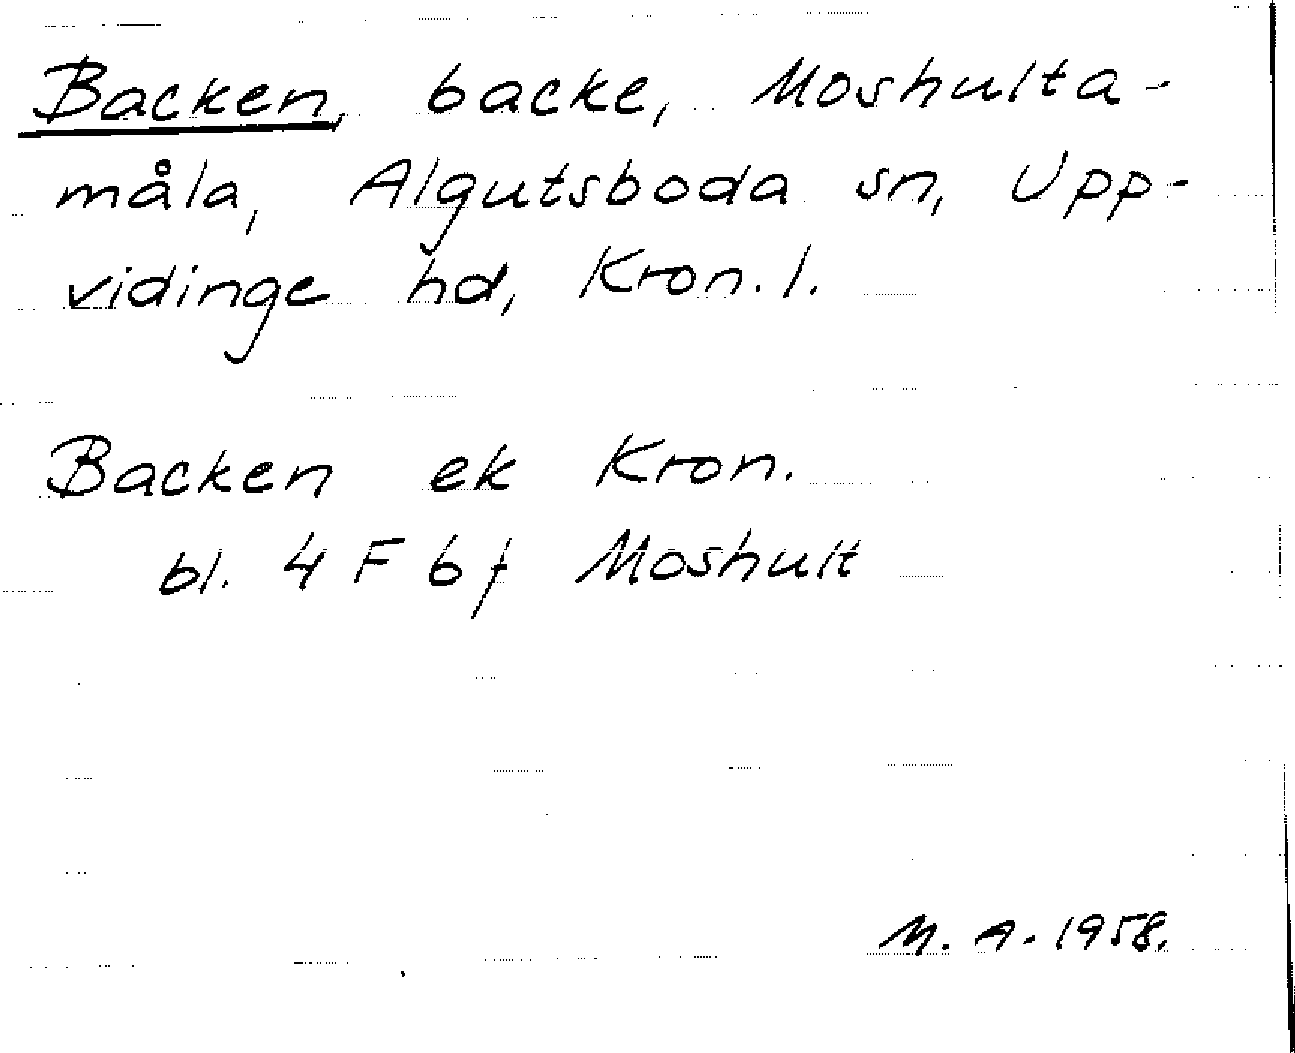 Backen, backe, Moshulta-
måla, Algutsboda sn, Upp-
vidinge hd, Kron. l.
Backen ek Kron.
bl. 4 F 6 f Moshult
M. A. 1958.